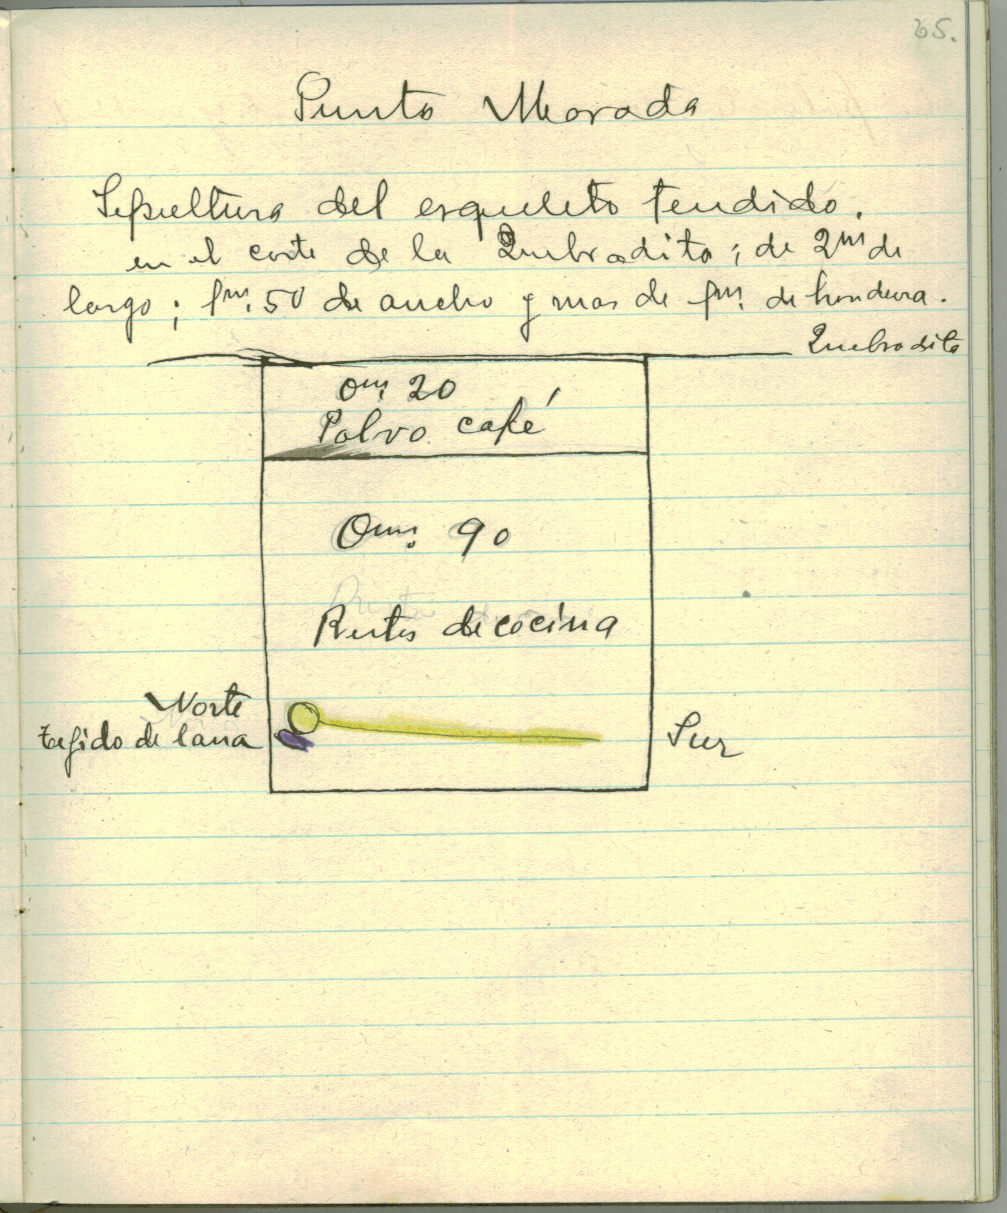 65.
Punta Morada
Sepultura del esqueleto tendido.
en el corte de la Quebradita; de 2m de
largo; 1m.50 de ancho y mas de 1m. de hondura.
Quebradita
0m. 20
Polvo café
0m. 90
Restos de cocina
Norte
tejido de lana
Sur